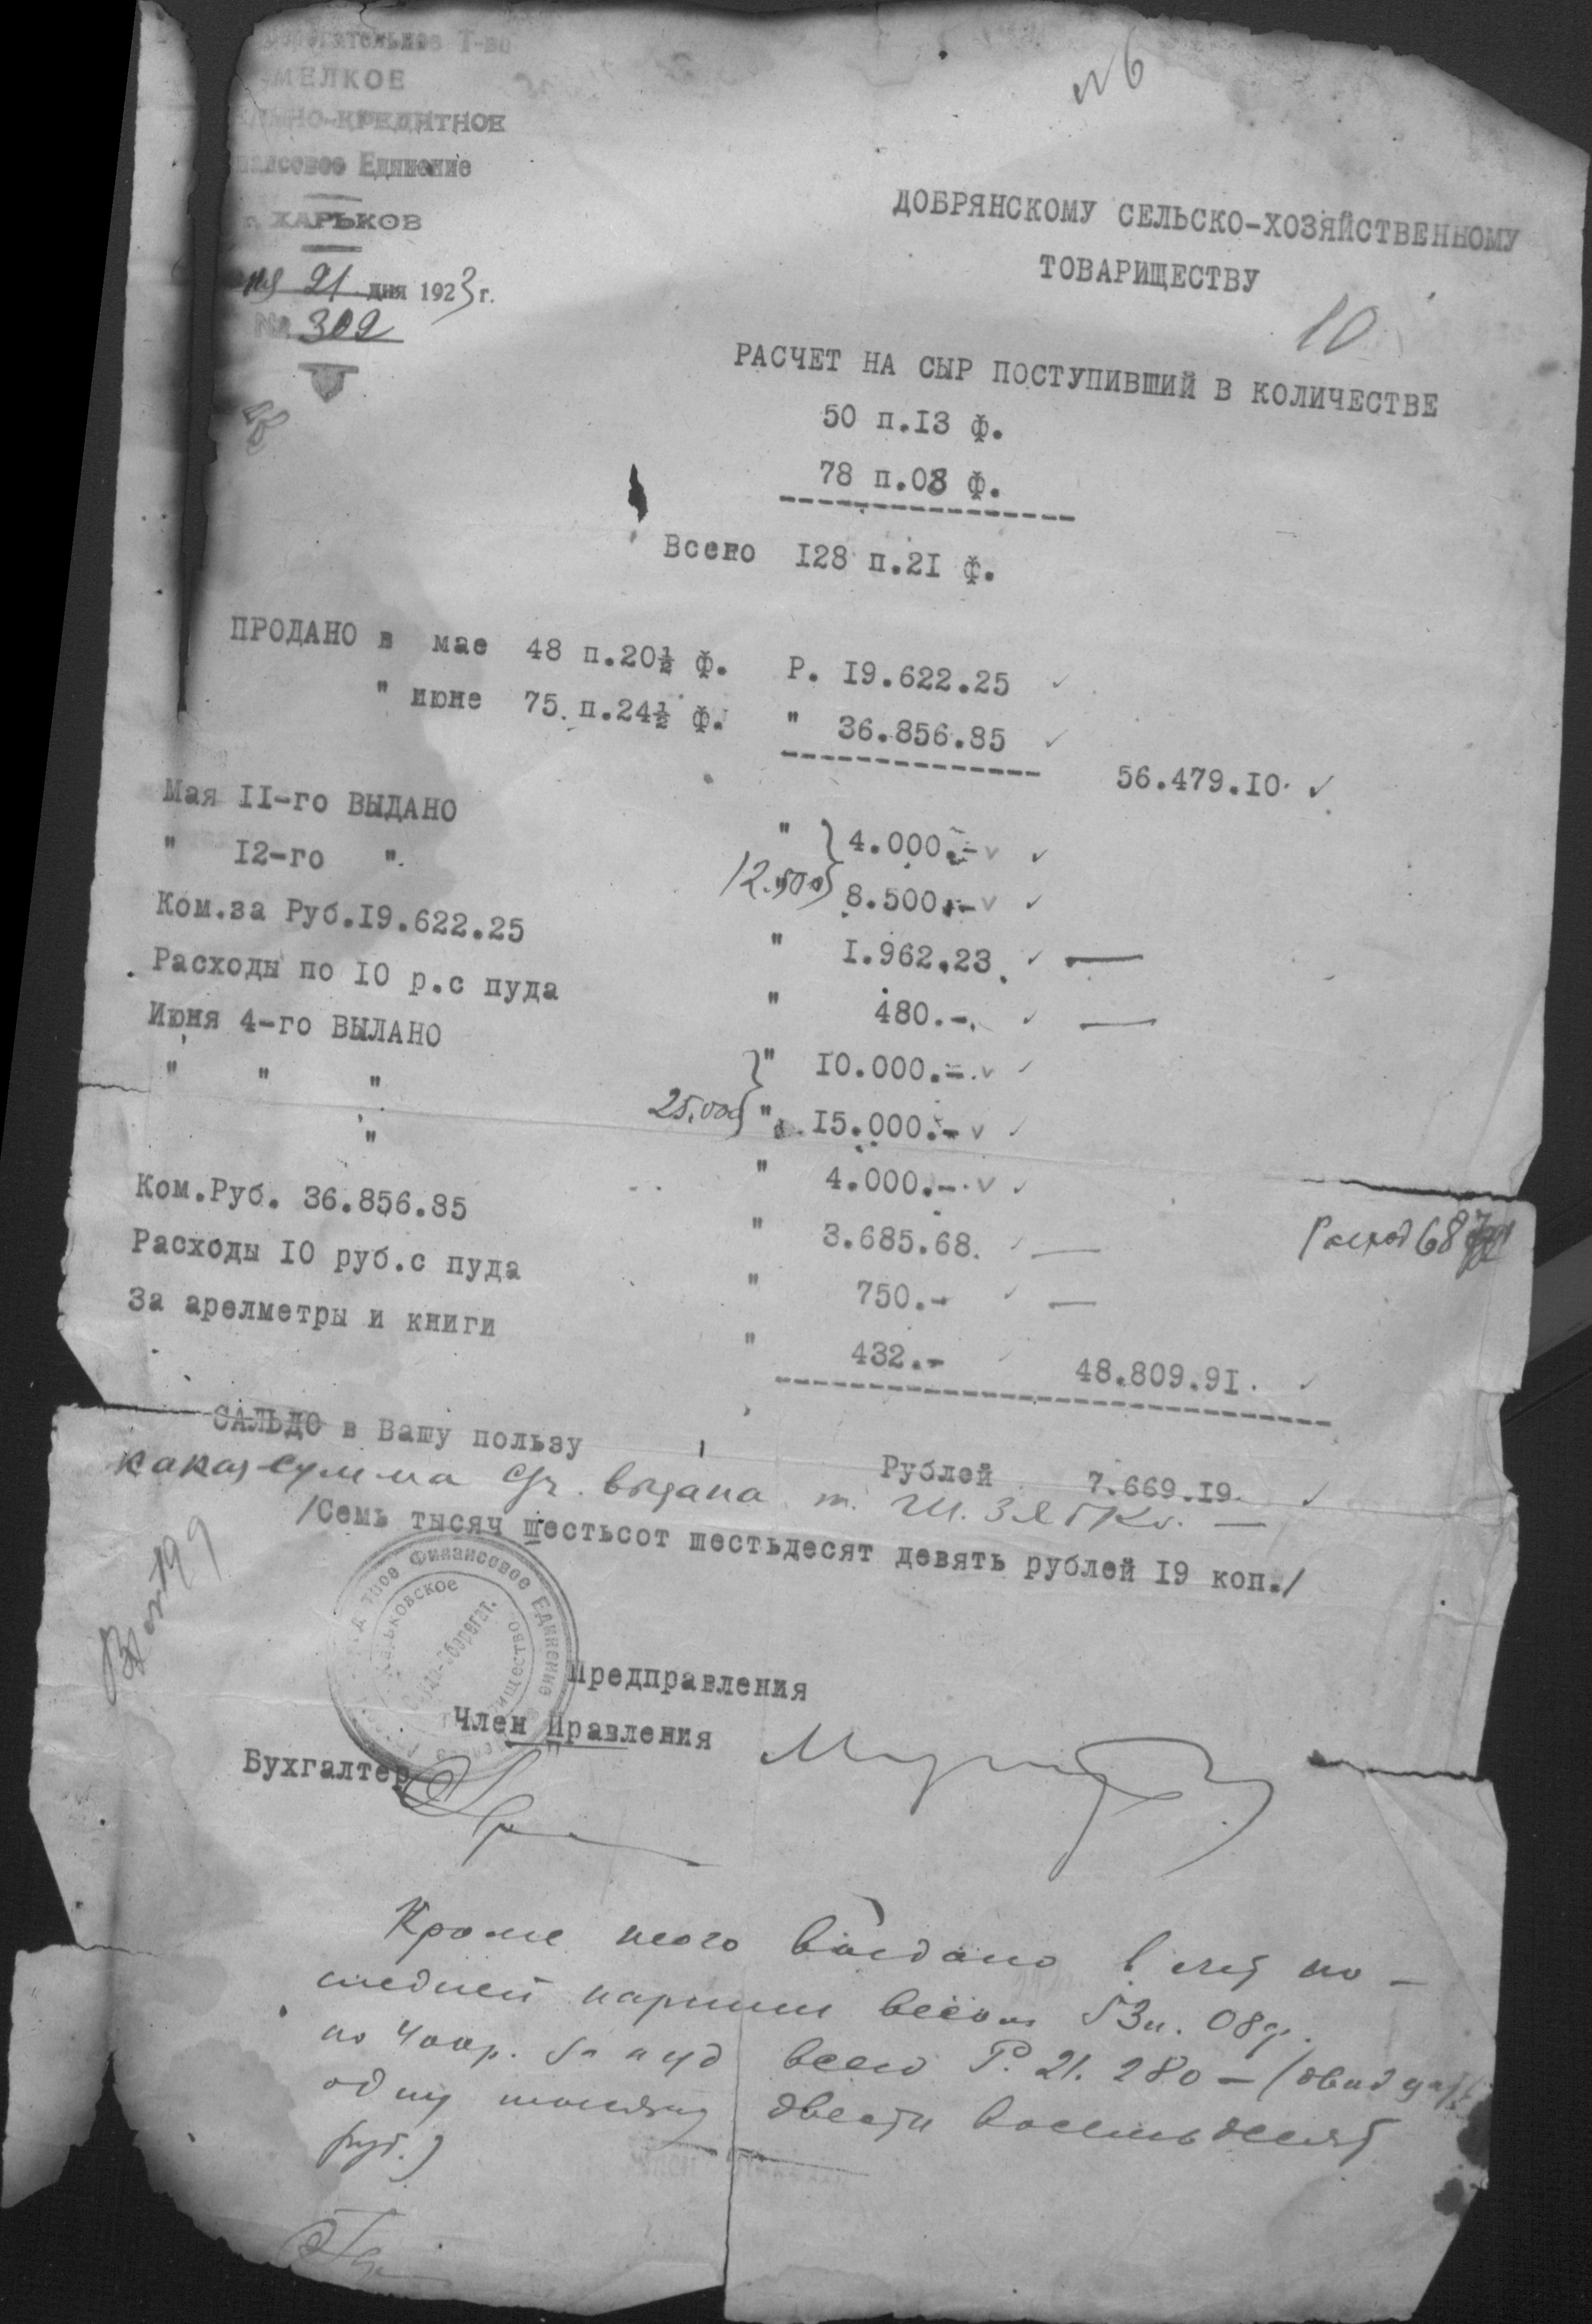 Т-во
МЕЛКОЕ
КРЕДИТНОЕ
Единение
г. ХАРЬКОВ
21 дня 1923 г.
№ 309
№ 6
ДОБРЯНСКОМУ СЕЛЬСКО-ХОЗЯЙСТВЕННОМУ
ТОВАРИЩЕСТВУ
10
РАСЧЕТ НА СЫР ПОСТУПИВШИЙ В КОЛИЧЕСТВЕ
50 п.I3 ф.
78 п.08 ф.
Всего I28 п.2I ф.
ПРОДАНО в мае 48 п.20½ ф. Р. I9.622.25
" июне 75 п.24½ ф. " 36.856.85
56.479.I0
Мая II-го ВЫДАНО " 4.000.-
" I2-го " 12.500 8.500.-
Ком.за Руб.I9.622.25 " I.962.23
Расходы по I0 р.с пуда " 480.-
Июня 4-го ВЫЛАНО " I0.000.-
" " " 25.000 " I5.000.-
" " 4.000.-
Ком.Руб. 36.856.85 " 3.685.68
Расходы I0 руб.с пуда " 750.-
За арелметры и книги " 432.- 48.809.9I
Расход 68
САЛЬДО в Вашу пользу Рублей 7.669.I9
какая сумма выдана т.
/Семь тысяч шестьсот шестьдесят девять рублей I9 коп./
Финансовое Единение
Предправления
Член Правления
Бухгалтер
Кроме того выдано в счет по-
следней партии весом 53 п. 08 ф.
по 400 р. за пуд всего Р. 21.280 — (двадцать
одну тысячу двести восемьдесят
руб.)